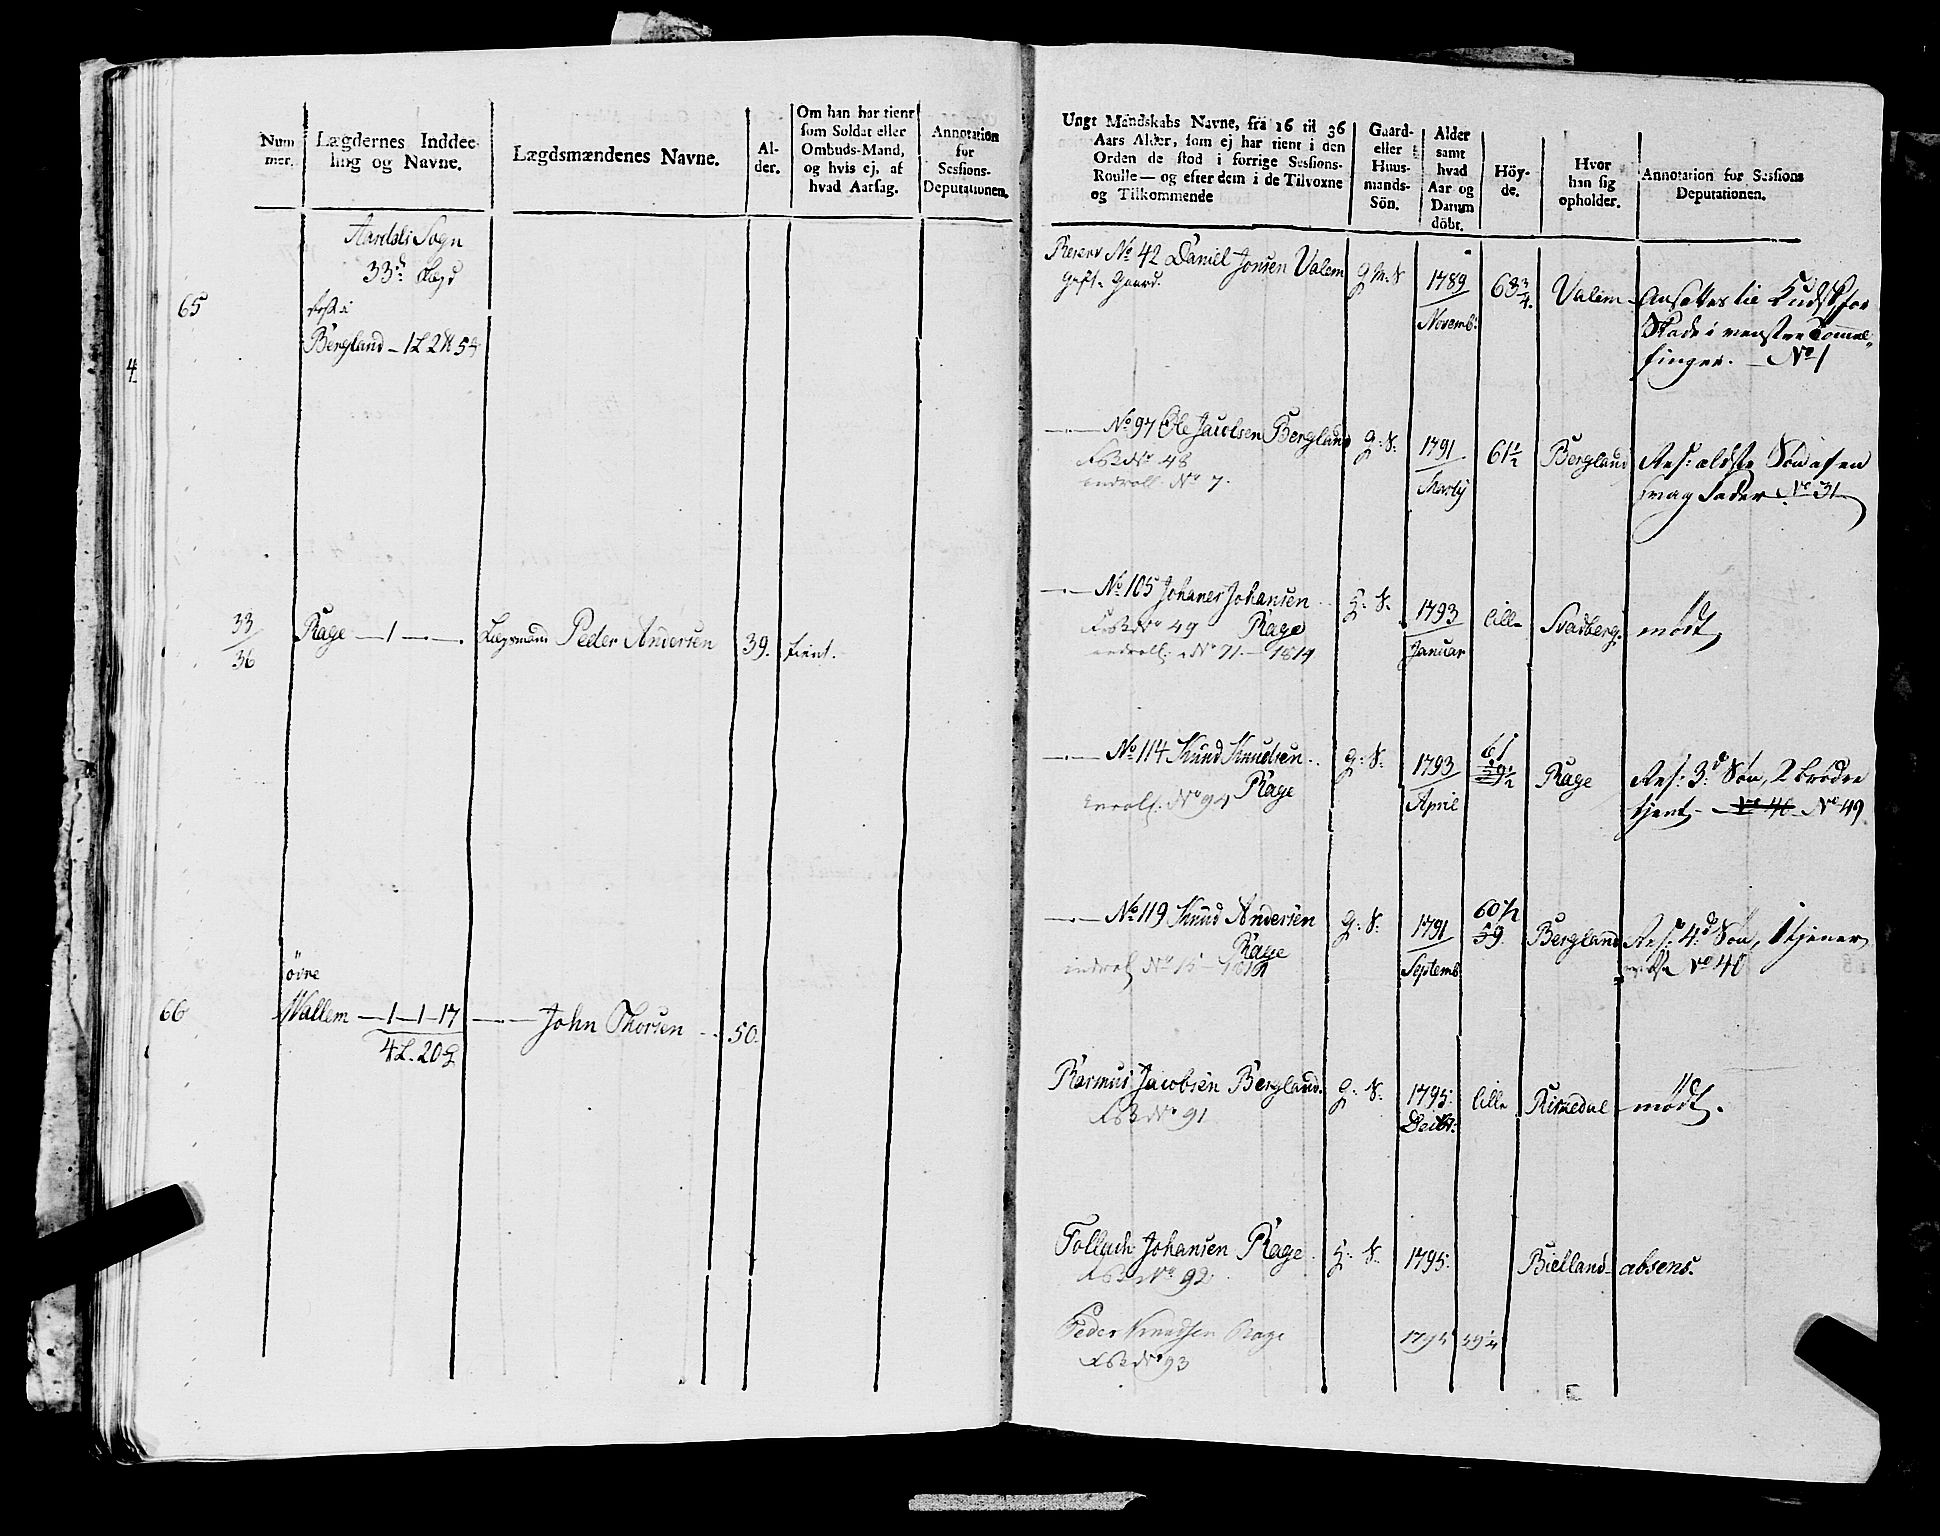 Num
mer.
Lægdernes Inddee-
ling og Navne.
Lægdsmændenes Navne.
Al-
der.
Om han har tient
som Soldat eller
Ombuds-Mand,
og hvis ej, af
hvad Aarsag.
Annotation
for
Sessions-
Deputationen.
Aardals Sogn
33d Lægd
65
Bergland - 1 L 2
4
33
36
Rage - 1 - - .
Lægsmand Peder Andersen
39.
tient.
øvre
66
Wallem - 1 - 1 - 17
John Thorsen
50.
4 L. 20
Ungt Mandskabs Navne, fra 16 til 36
Aars Alder, som ej har tient i den
Orden de stod i forrige Sessions-
Roulle — og efter dem i de Tilvoxne
og Tilkommende
Gaard-
eller
Huus-
mands-
Sön.
Alder
samt
hvad
Aar og
Datum
döbt.
Höy-
de.
Hvor
han sig
opholder.
Annotation for Sessions
Deputationen.
Reserv No 42 Daniel Jonsen Valem
gift. Gaard.
1789
Novemb:
68 3/4.
Valem
Ansættes til Kudsk for
Skade i venstre Tommel-
finger. - No 1
No 97 Ole Jacobsen Bergland
No 48
No 7.
g: S:
1791
Martij
61 1/2
Bergland
Res: ældste Søn af en
svag Fader No 31
No 105 Johanes Johansen
No 49 Rage
No 71. - 1814
1793
Januar
lille
Svadberg.
mødt
No 114 Knud Knudsen
Rage
No 94
g: S:
1793
April
61
59 1/2
Rage
Res: 3d Søn, 2 brødre
tjent - No 40 No 49
No 119 Knud Andersen
Rage
No 15
g: S:
1791
Septemb
60 1/2
59.
Bergland
Res: 4d Søn, 1 tjener
No 40
Rasmus Jacobsen Bergland.
No 91
g: S:
1795.
Decbr:
lille
Rismedal
mødt.
Tollach Johansen Rage
No 92
1795.
Bielland
absens.
Peder Knudsen Rage
No 93
1795
59 1/4